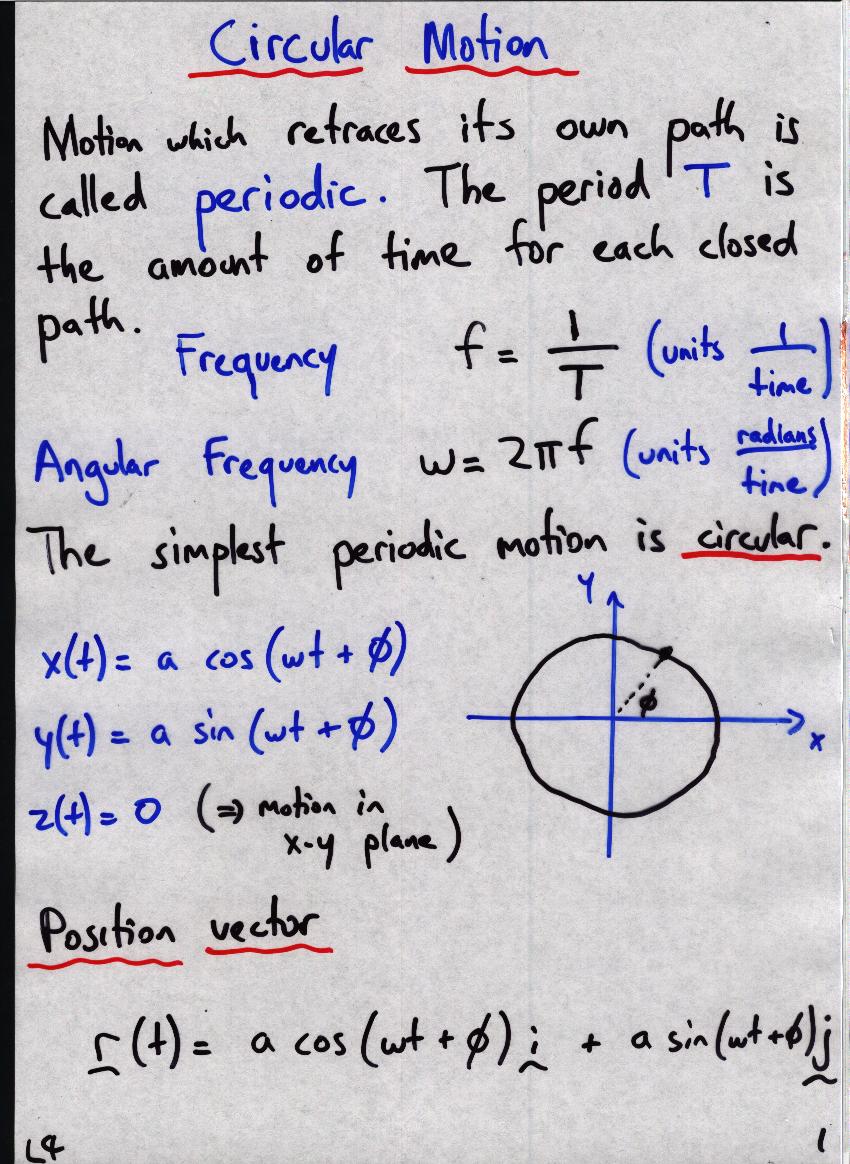 Circular Motion
Motion which retraces its own path is
called periodic. The period T is
the amount of time for each closed
path.
Frequency f = 1/T (units 1/time)
Angular Frequency ω = 2πf (units radians/time)
The simplest periodic motion is circular.
x(t) = a cos(ωt + ϕ)
y(t) = a sin(ωt + ϕ)
z(t) = 0 (⇒ motion in
x-y plane)
Y
ϕ
x
Position vector
r(t) = a cos(ωt + ϕ) i + a sin(ωt + ϕ) j
L4
1